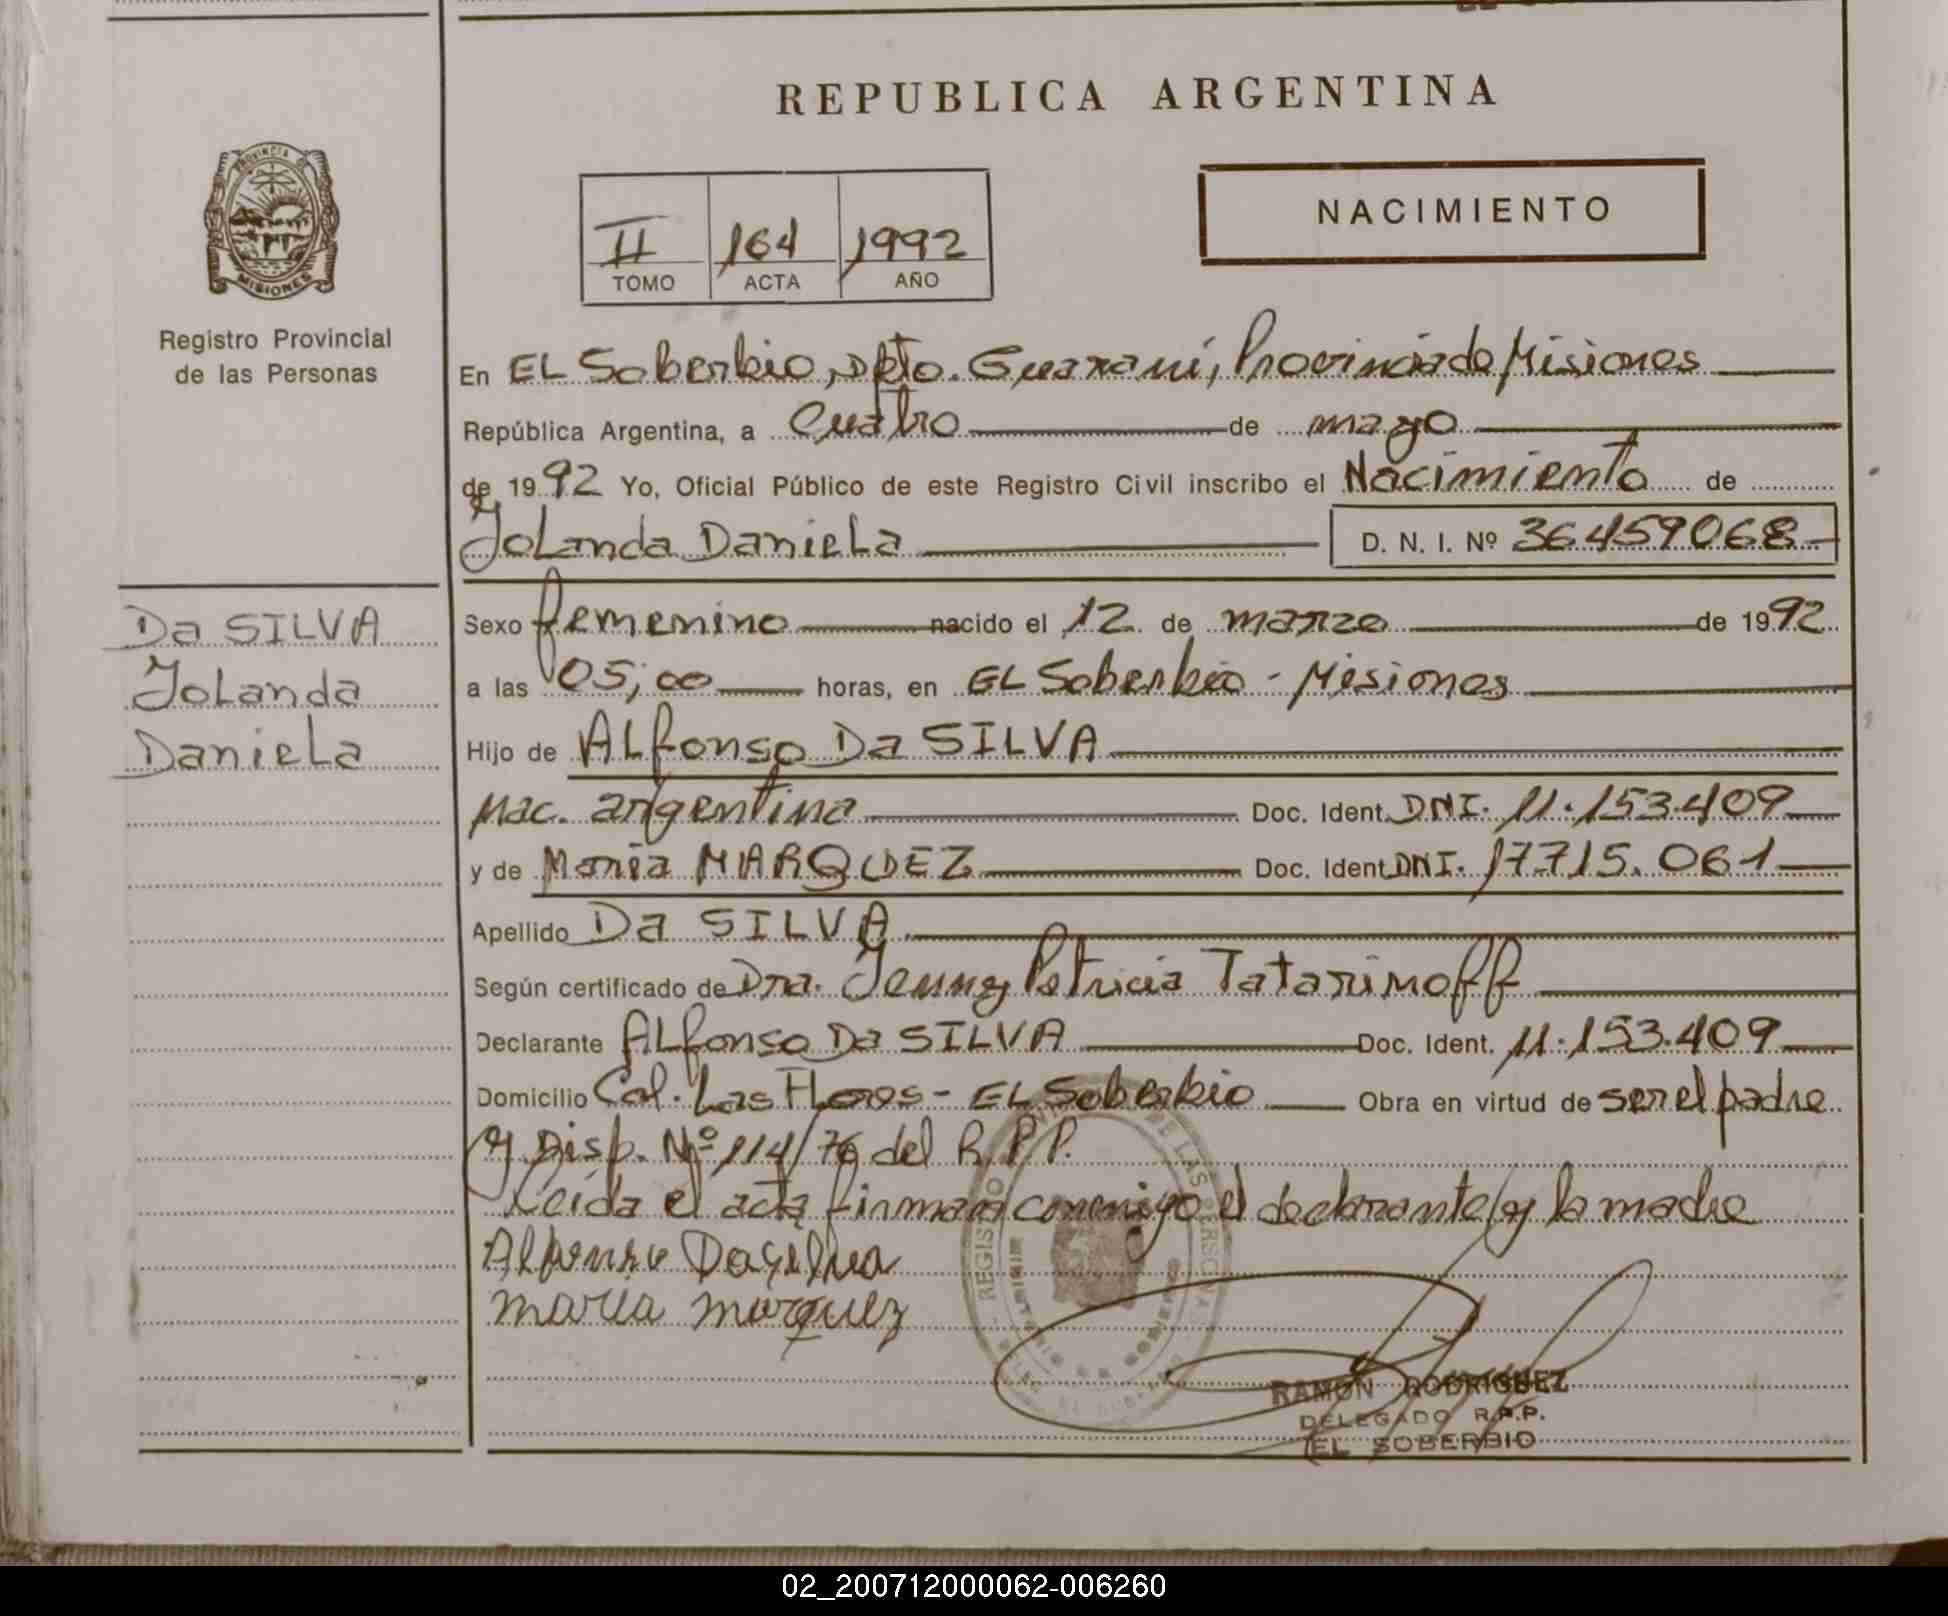 REPUBLICA ARGENTINA
PROVINCIA DE
MISIONES
Registro Provincial
de las Personas
II 164 1992
TOMO ACTA AÑO
NACIMIENTO
En EL Soberbio, Dpto. Guaraní, Provincia de Misiones
República Argentina, a Cuatro de mayo
de 1992 Yo, Oficial Público de este Registro Civil inscribo el Nacimiento de
Yolanda Daniela D. N. I. Nº 36459068
Da SILVA
Yolanda
Daniela
Sexo femenino nacido el 12 de marzo de 1992
a las 05,00 horas, en EL Soberbio - Misiones
Hijo de Alfonso Da SILVA
nac. argentina Doc. Ident. DNI. 11.153.409
y de Maria MARQUEZ Doc. Ident DNI. 17.715.061
Apellido Da SILVA
Según certificado de Dra. Jenny Patricia Tatarinoff
Declarante Alfonso Da SILVA Doc. Ident. 11.153.409
Domicilio Col. Las Flores - EL Soberbio Obra en virtud de ser el padre
y Disp. Nº 114/76 del R.P.P.
Leída el acta firman conmigo el declarante y la madre
Alfonso Dasilva
maria marquez
REGISTRO DE LAS PERSONAS
RAMON RODRIGUEZ
DELEGADO R.P.P.
EL SOBERBIO
02_200712000062-006260